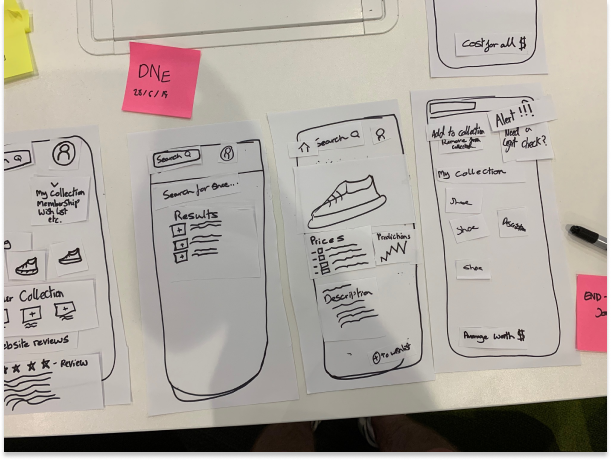 Cost for all $
DNE
28/6/19
Search
My Collection
Membership
Wish list
etc.
Collection
ebsite reviews
- Review
Search
Search for shoe...
Results
Search
Prices
Predictions
Description
Alert !!!
Add to collection
Remove from
collection
Need a
legit check?
My Collection
Shoe
Shoe
Shoe
Average worth $
END-